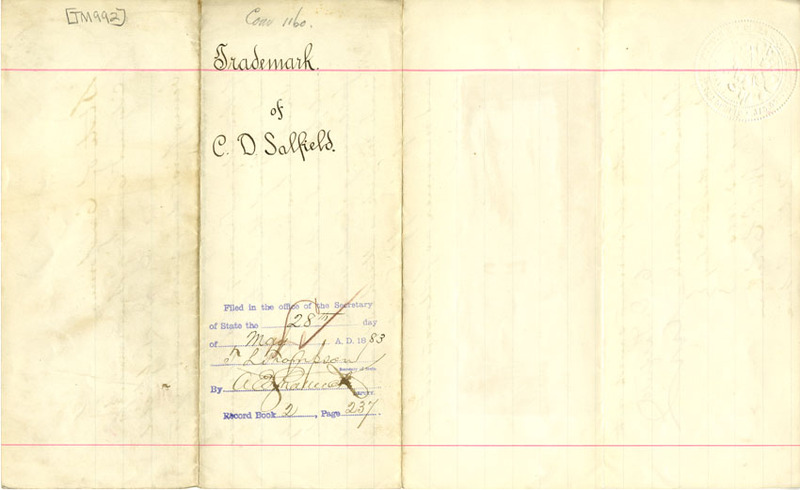 [TM992]
Conv 1160.
Trademark.
of
C. D. Salfield.
Filed in the office of the Secretary
of State the 28th day
of May A. D. 1883
T L Thompson
Secretary of State
By
Deputy.
Record Book 2, Page 237.